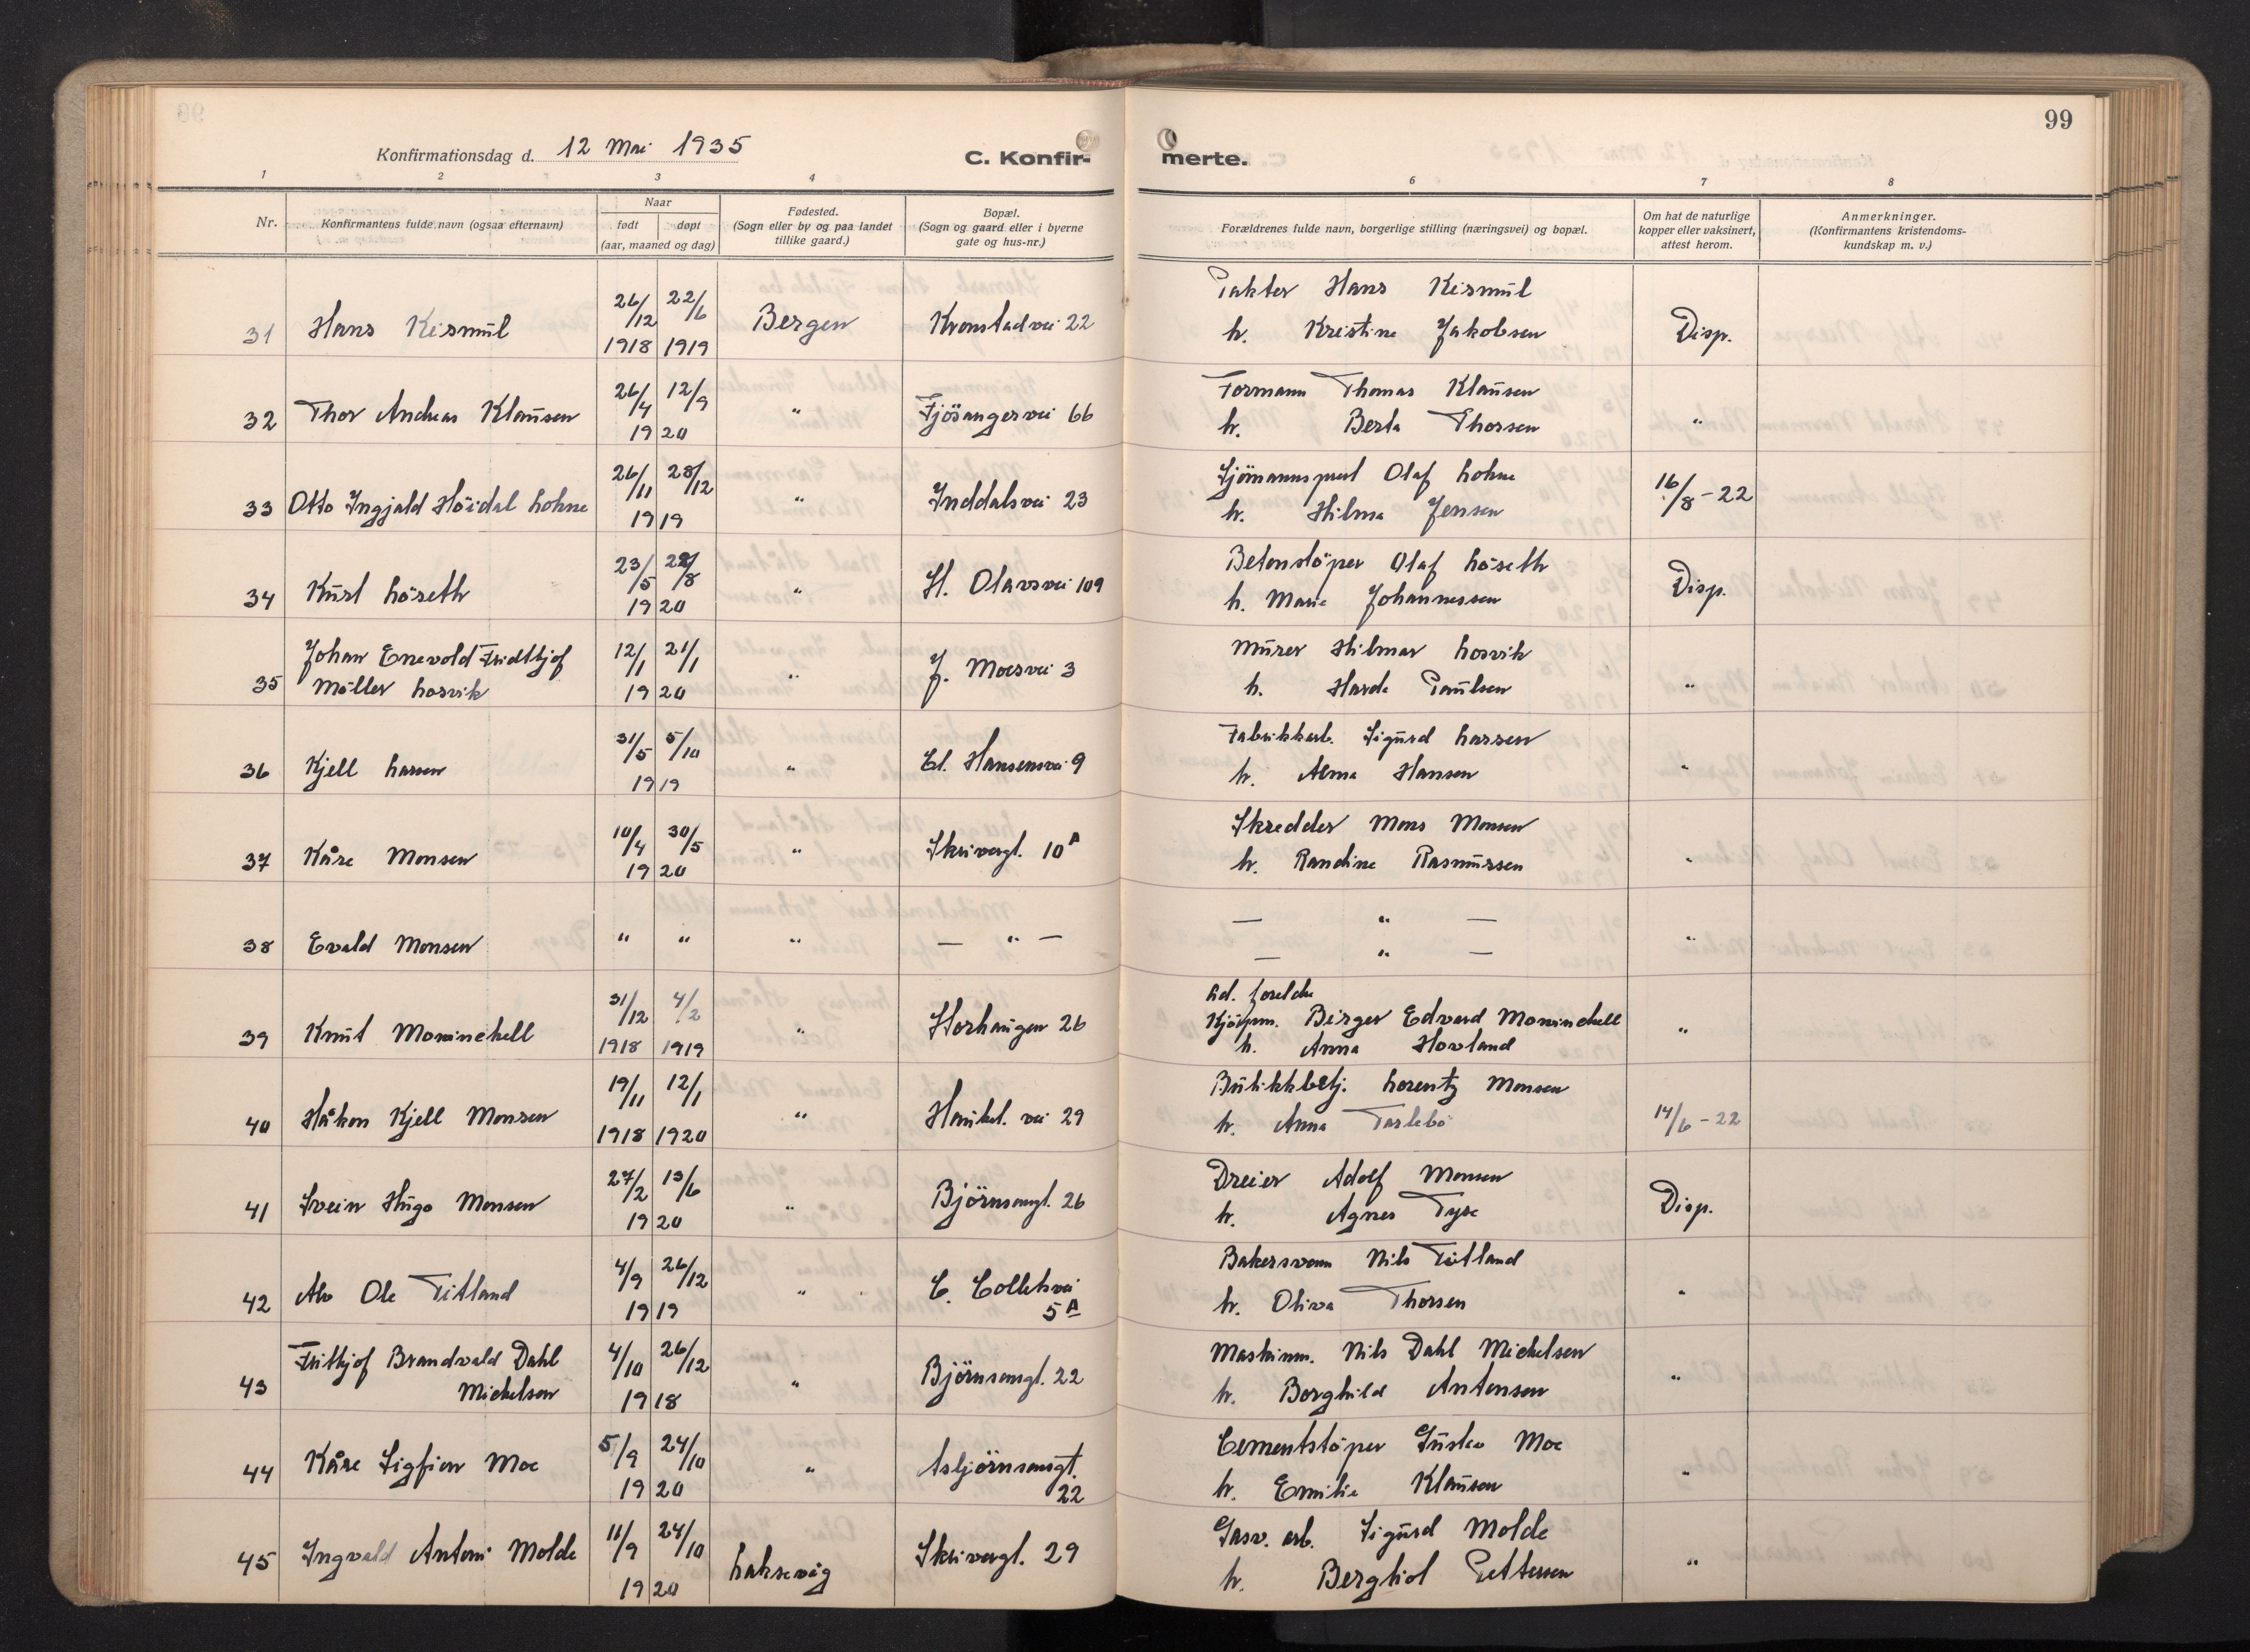 99
Konfirmationsdag d. 12 Mai 1935
C. Konfir- merte.
1 2 3 4 6 7 8
Nr.
Konfirmantens fulde navn (ogsaa efternavn)
Naar
født døpt
(aar, maaned og dag)
Fødested.
(Sogn eller by og paa landet
tillike gaard.)
Bopæl.
(Sogn og gaard eller i byerne
gate og hus-nr.)
Forældrenes fulde navn, borgerlige stilling (næringsvei) og bopæl.
Om hat de naturlige
kopper eller vaksinert,
attest herom.
Anmerkninger.
(Konfirmantens kristendoms-
kundskap m. v.)
Takter Hans Kismül
31 Hans Kismül 26/12 1918 22/6 1919 Bergen Kronstadvei 22 h. Kristine Jakobsen Disp.
Formann Thomas Klaüsen
32 Thor Andreas Klaüsen 26/4 12/9 1920 " Fjösangervei 66 h. Berta Thorsen "
Sjömannsprest Olaf Lohne
33 Otto Ingjald Höidal Lohne 26/11 28/12 1919 " Inddalsvei 23 h. Hilma Jensen 16/8-22
Betonstöper Olaf Löseth
34 Kürt Löseth 23/5 28/8 1920 " St. Olavsvei 109 h. Marie Johannessen Disp.
Johan Enevold Fridtjof Mürer Hilmar Losvik
35 Möller Losvik 12/1 21/1 1920 " J. Moesvei 3 h. Harda Paülsen "
Fabrikkarb. Sigürd Larsen
36 Kjell Larsen 31/5 5/10 1919 " El. Hansensvei 9 h. Alma Hansen "
Skredder Mons Monsen
37 Kåre Monsen 10/4 30/5 1920 " Skrivergt. 10A h. Randine Rasmüssen "
— " —
38 Evald Monsen " " " — " — — " — "
Ad. foreldre
Kjöpm. Birger Edvard Monsinchell
39 Knüt Monsinchell 31/12 1918 4/2 1919 " Storhaügen 26 h. Anna Hovland "
Bütikkbetj. Lorentz Monsen
40 Håkon Kjell Monsen 19/11 1918 12/1 1920 " Haükel. vei 29 h. Anna Tarlebö 14/6-22
Dreier Adolf Monsen
41 Svein Hügo Monsen 27/2 13/6 1920 " Björnsonsgt. 26 h. Agnes Tyse Disp.
Bakersvenn Nils Titland
42 Alv Ole Titland 4/9 26/12 1919 " C. Colletsvei 5A h. Oliva Thorsen "
Frithjof Brandvold Dahl Maskinm. Nils Dahl Michelsen
43 Michelsen 4/10 26/12 1918 " Björnsonsgt. 22 h. Borghild Antonsen "
Cementstöper Güstav Moe
44 Kåre Sigfinn Moe 5/9 24/10 1920 " Asbjörnsensgt. 22 h. Emilie Klaüsen "
Gasv. arb. Sigürd Molde
45 Ingvald Antoni Molde 11/9 24/10 1920 Laksevåg Skrivergt. 29 h. Berghot Pettersen "